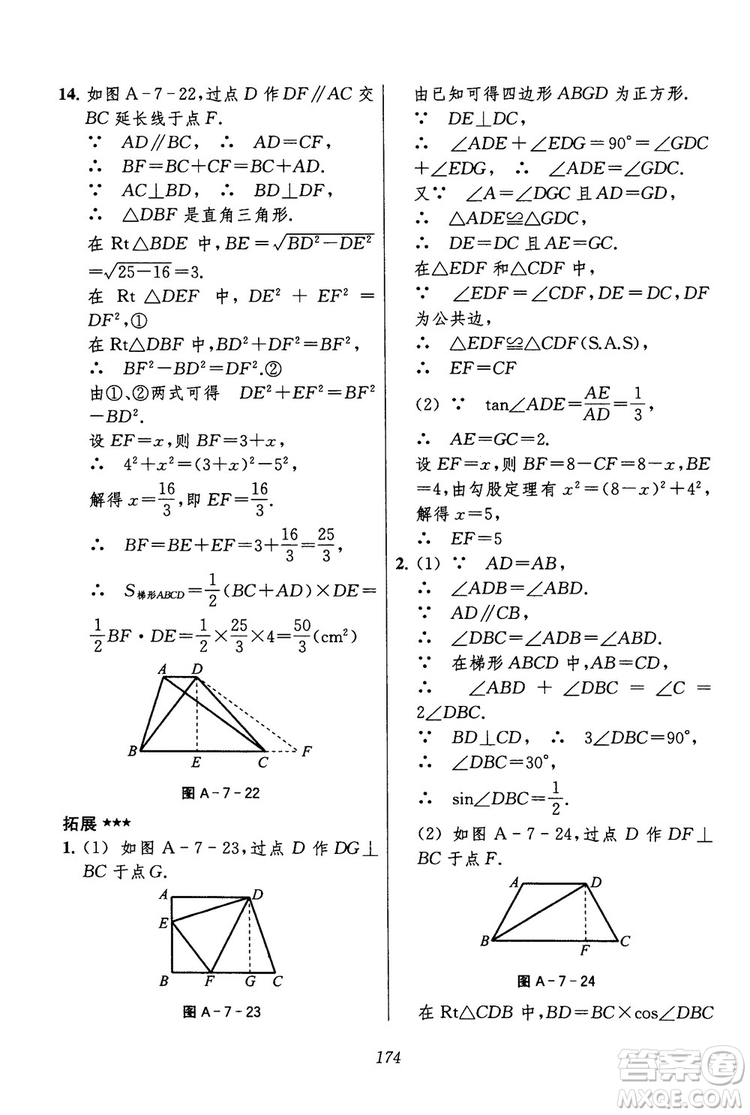 14. 如图 A-7-22,过点 D 作 DF∥AC 交
BC 延长线于点 F.
∵ AD∥BC, ∴ AD=CF,
∴ BF=BC+CF=BC+AD.
∵ AC⊥BD, ∴ BD⊥DF,
∴ △DBF 是直角三角形.
在 Rt△BDE 中, BE=√(BD²-DE²)
=√(25-16)=3.
在 Rt △DEF 中, DE² + EF² =
DF²,①
在 Rt△DBF 中,
∴ BF²-BD²=DF².②
由①、②两式可得 DE²+EF²=BF²
-BD².
设 EF=x,则 BF=3+x
∴ 4²+x²=(3+x)²-5²,
解得 x=16/3,即 EF=16/3.
∴ BF=BE+EF=3+16/3=25/3,
∴ S梯形ABCD=1/2(BC+AD)×DE=
1/2BF·DE=1/2×25/3×4=50/3(cm²)
A D
B E C F
图 A-7-22
拓展 ★★★
1. (1) 如图 A-7-23,过点 D 作 DG⊥
BC 于点 G.
A D
E
B F G C
图 A-7-23
由已知可得四边形 ABGD 为正方形.
∵ DE⊥DC,
∴ ∠ADE+∠EDG=90°=∠GDC
+∠EDG, ∴ ∠ADE=∠GDC.
又∵ ∠A=∠DGC 且 AD=GD,
∴ △ADE≌△GDC,
∴ DE=DC 且 AE=GC.
在△EDF 和△CDF 中,
∵ ∠EDF=∠CDF, DE=DC, DF
为公共边,
∴ △EDF≌△CDF(S.A.S),
∴ EF=CF
(2) ∵ tan∠ADE=AE/AD=1/3,
∴ AE=GC=2.
设 EF=x,则 BF=8-CF=8-x, BE
=4,由勾股定理有 x²=(8-x)²+4²,
解得 x=5,
∴ EF=5
2. (1) ∵ AD=AB,
∴ ∠ADB=∠ABD.
∵ AD∥CB,
∴ ∠DBC=∠ADB=∠ABD.
∵ 在梯形 ABCD 中,AB=CD,
∴ ∠ABD + ∠DBC = ∠C =
2∠DBC.
∵ BD⊥CD, ∴ 3∠DBC=90°,
∴ ∠DBC=30°,
∴ sin∠DBC=1/2.
(2) 如图 A-7-24,过点 D 作 DF⊥
BC 于点 F.
A D
B F C
图 A-7-24
在 Rt△CDB 中, BD=BC×cos∠DBC
174
答案圈
MXQE.COM